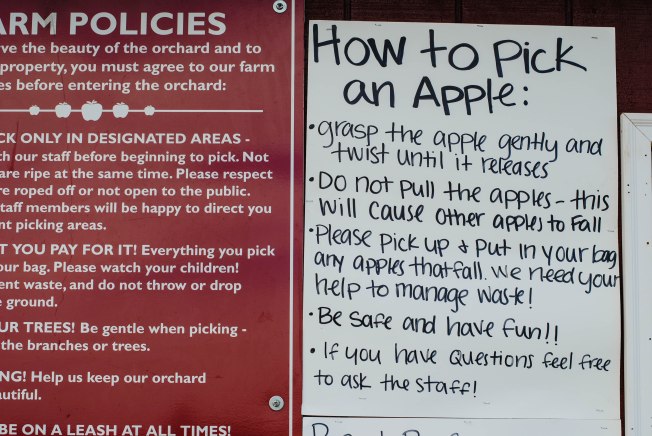 ARM POLICIES
ve the beauty of the orchard and to
property, you must agree to our farm
es before entering the orchard:
CK ONLY IN DESIGNATED AREAS -
th our staff before beginning to pick. Not
are ripe at the same time. Please respect
re roped off or not open to the public.
taff members will be happy to direct you
nt picking areas.
T YOU PAY FOR IT! Everything you pick
our bag. Please watch your children!
ent waste, and do not throw or drop
e ground.
UR TREES! Be gentle when picking -
the branches or trees.
NG! Help us keep our orchard
autiful.
BE ON A LEASH AT ALL TIMES!
How to Pick
an Apple:
• grasp the apple gently and
twist until it releases
• Do not pull the apples - this
will cause other apples to fall
• Please pick up & put in your bag
any apples that fall. We need your
help to manage waste!
• Be safe and have fun!!
• If you have Questions feel free
to ask the staff!